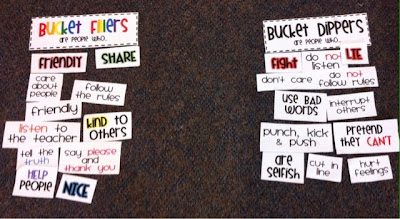 BUCKET FILLERS
are PEOPLE WHO...
FRIENDLY
SHARE
care
about
people
follow
the rules
friendly
listen to
the teacher
kind to
others
tell the
truth
say please
and
thank you
HELP
PEOPLE
NICE
BUCKET DIPPERS
are PEOPLE WHO...
FIGHT
do not
listen
LIE
don't care
do not
follow rules
USE BAD
WORDS
interrupt
others
punch, kick
& push
PRETEND
THEY CAN'T
are
SELFISH
cut in
line
hurt
feelings